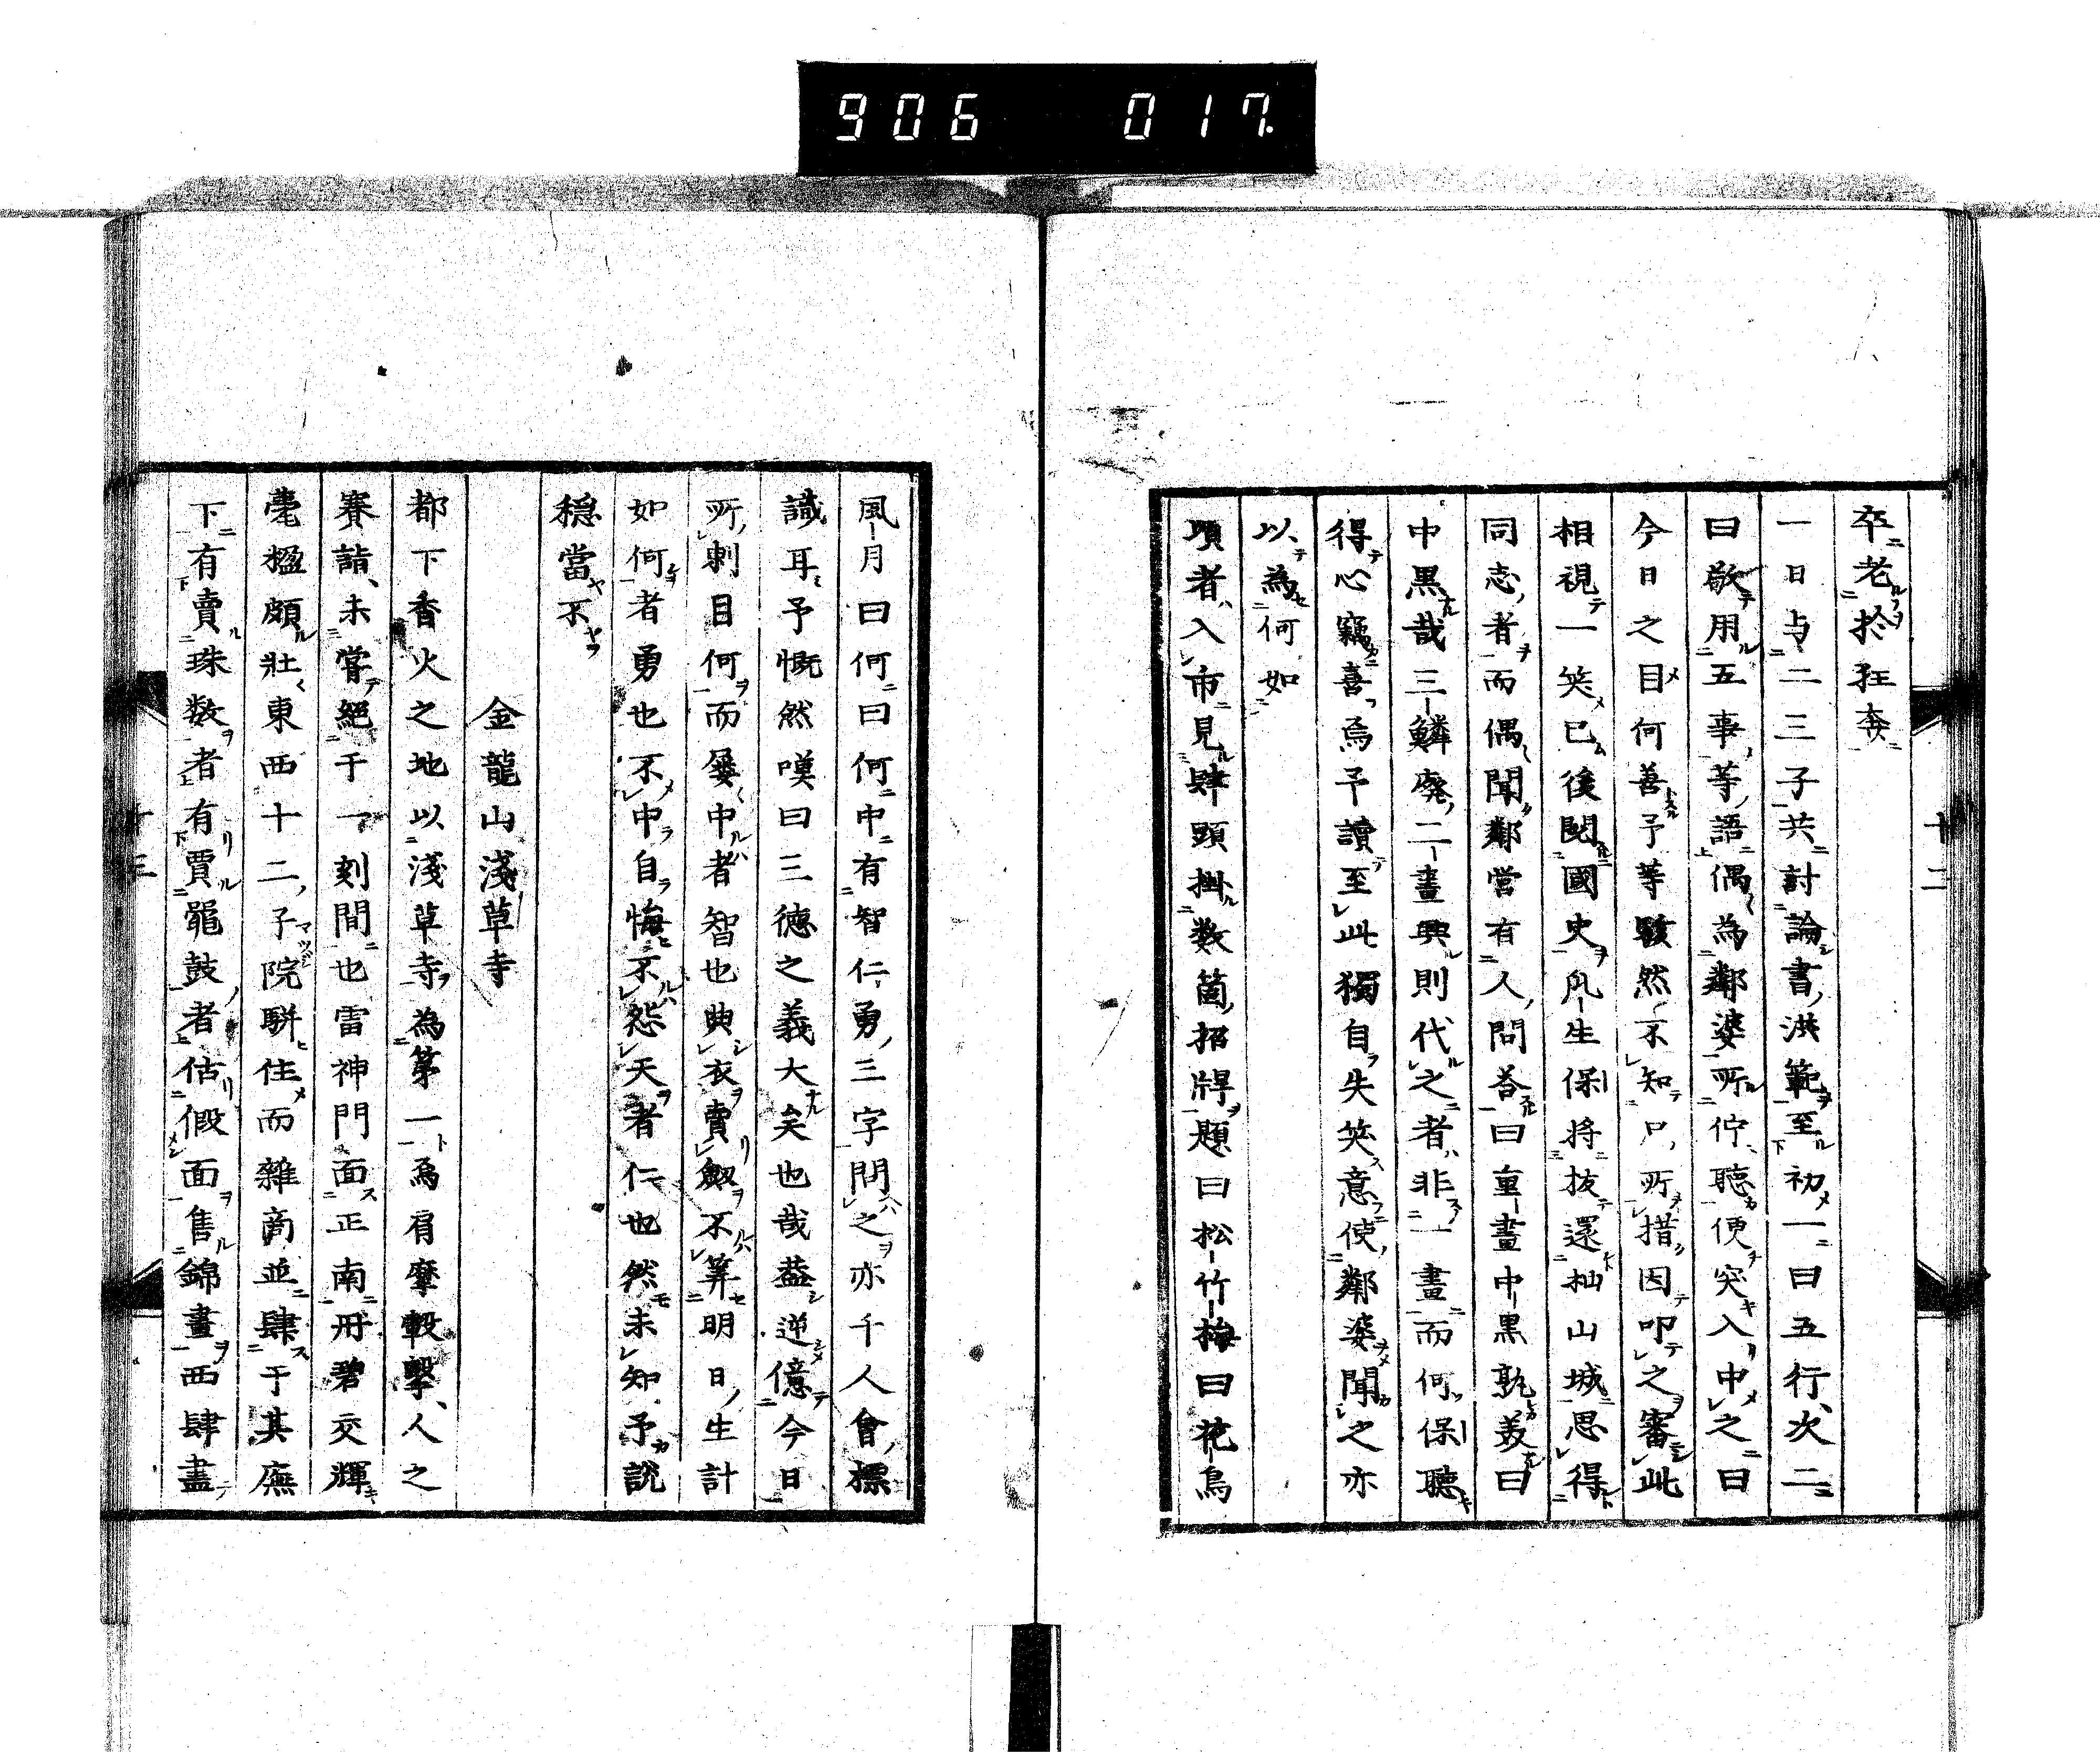 906 017
十二
卒老於狂奔
一日与二三子共討論書洪範至初一曰五行次二
曰敬用五事等語偶為鄰婆所佇聽便突入中之曰
今日之目何善予等駭然不知口所措因叩之審此
相視一笑已後閲國史凡生保將抜還松山城思得
同志者而偶聞鄰嘗有人問答曰重畫中黒孰美曰
中黒哉三鱗廃二畫興則代之者非一畫而何保聽
得心竊喜焉予讀至此獨自失笑意使鄰婆聞之亦
以為何如
頃者入市見肆頭掛数箇招牌題曰松竹梅曰花鳥
風月曰何曰何中有智仁勇三字問之亦千人會標
識耳予慨然嘆曰三徳之義大矣也哉益逆億今日
所剌目何而屡中者智也典衣賣劔不筭明日生計
如何者勇也不中自悔不怨天者仁也然未知予説
穏當不
金龍山淺草寺
都下香火之地以淺草寺為第一焉肩摩轂撃人之
賽詣未嘗絕于一刻間也雷神門面正南丹碧交輝
甍楹頗壯東西十二子院駢住而雜商並肆于其廡
下有賣珠数者有賈鼗鼓者估假面售錦畫西肆盡
十三